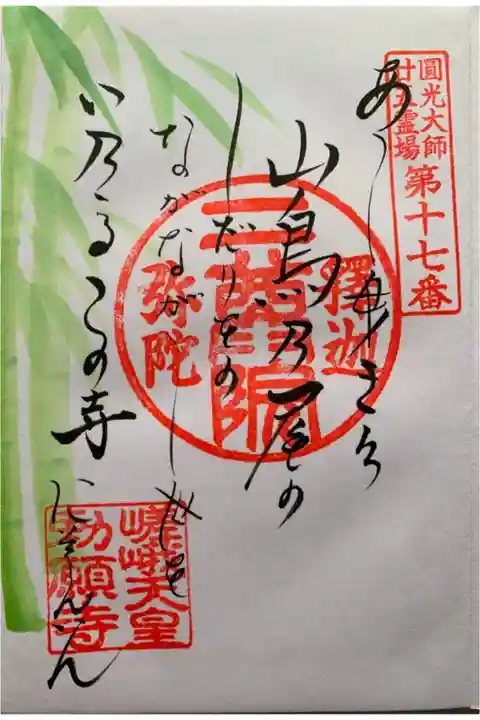 圓光大師
廿五霊場
第十七番
あし曳きの
山鳥乃尾の
しだりをの
ながながし世を
い乃るこの寺
にそんゐん
釋迦
二尊院
弥陀
嵯峨天皇
勅願寺